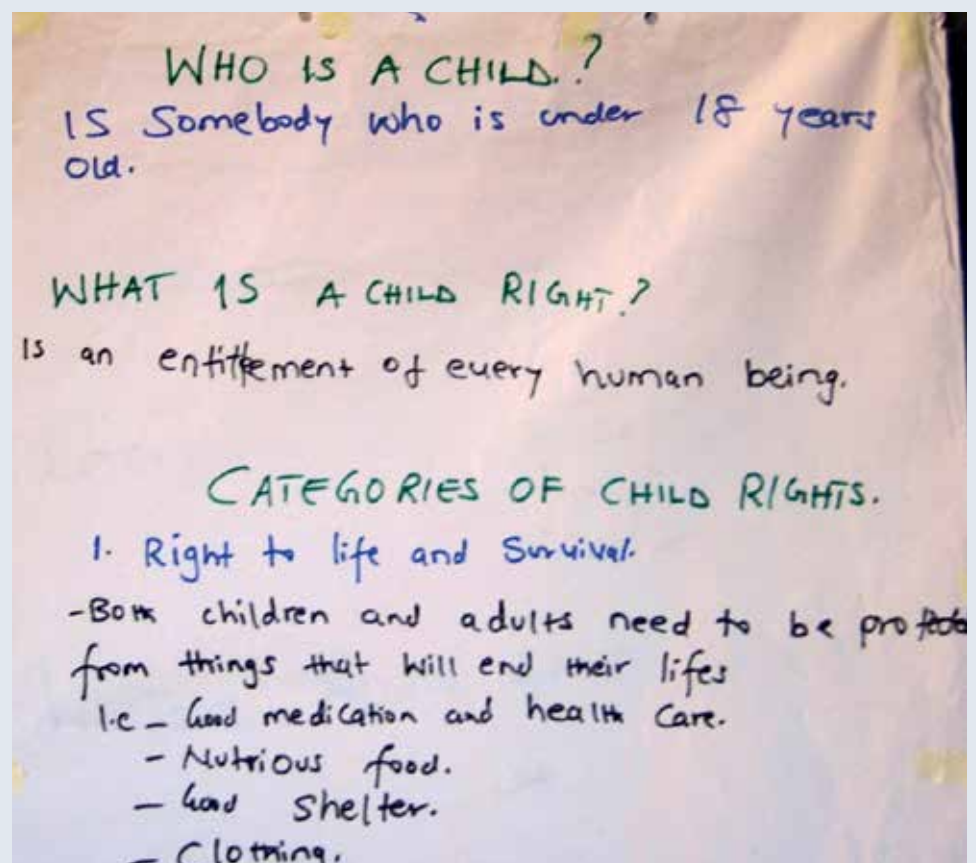 WHO IS A CHILD.?
IS Somebody who is under 18 years
old.
WHAT IS A CHILD RIGHT?
Is an entitlement of every human being.
CATEGORIES OF CHILD RIGHTS.
1. Right to life and Survival.
-Both children and adults need to be
from things that will end their lifes
I.e - Good medication and health Care.
- Nutrious food.
- Good Shelter.
- Clothing.